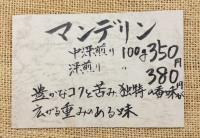 マンデリン
中深煎り 100g 350円
深煎り 〃 380円
豊かなコクと苦み独特の香味が
広がる重みのある味